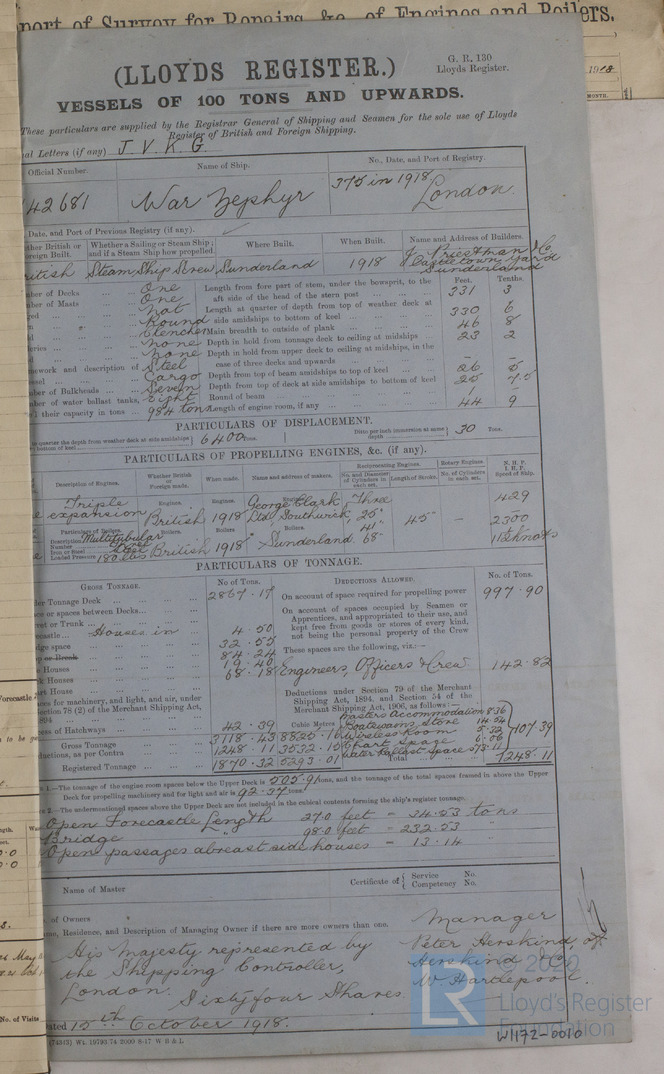 port of Survey for Repairs, &c., of Engines and Boilers.
1918
MONTH.
(LLOYDS REGISTER.)
G. R. 130
Lloyds Register.
VESSELS OF 100 TONS AND UPWARDS.
These particulars are supplied by the Registrar General of Shipping and Seamen for the sole use of Lloyds
Register of British and Foreign Shipping.
al Letters (if any) J. V. K. G.
Official Number.
Name of Ship.
No., Date, and Port of Registry.
42681
War Zephyr
375 in 1918
London.
Date, and Port of Previous Registry (if any).
ther British or
oreign Built.
Whether a Sailing or Steam Ship;
and if a Steam Ship how propelled.
Where Built.
When Built.
Name and Address of Builders.
ritish
Steam Ship Screw
Sunderland
1918
J. Priestman & Co.
Castletown Yard
Sunderland
Feet.
Tenths.
ber of Decks ... One
ber of Masts ... One
ed ... not
Round
Clencher
leries ... none
none
mework and description of Steel
ssel ... Cargo
ber of Bulkheads ... Seven
ber of water ballast tanks, Eight
d their capacity in tons ... 984 tons
Length from fore part of stem, under the bowsprit, to the
aft side of the head of the stern post ... 331 3
Length at quarter of depth from top of weather deck at
side amidships to bottom of keel ... 330 6
Main breadth to outside of plank ... 46 8
Depth in hold from tonnage deck to ceiling at midships ... 23 2
Depth in hold from upper deck to ceiling at midships, in the
case of three decks and upwards ... - -
Depth from top of beam amidships to top of keel ... 26 5
Depth from top of deck at side amidships to bottom of keel 25 7.5
Round of beam ... 1 -
Length of engine room, if any ... 44 9
PARTICULARS OF DISPLACEMENT.
to quarter the depth from weather deck at side amidships
to bottom of keel
6400 tons.
Ditto per inch immersion at same
depth
30 Tons.
PARTICULARS OF PROPELLING ENGINES, &c. (if any).
Description of Engines.
Whether British
or Foreign made.
When made.
Name and address of makers.
Reciprocating Engines.
No. and Diameter
of Cylinders in
each set.
Length of Stroke.
Rotary Engines.
No. of Cylinders
in each set.
N. H. P.
I. H. P.
Speed of Ship.
Triple
expansion
Engines.
British
Engines.
1918
Engines.
George Clark
Ltd. Southwick,
Three
25"
41"
68"
45"
-
429
2300
11½ knots
Particulars of Boilers.
Description Multitubular
Number
Iron or Steel Steel
Loaded Pressure 180 lbs
Boilers.
British
Boilers.
1918
Boilers.
Sunderland.
PARTICULARS OF TONNAGE.
GROSS TONNAGE.
No of Tons.
DEDUCTIONS ALLOWED.
No. of Tons.
der Tonnage Deck ... 2867.17
ce or spaces between Decks...
ret or Trunk ...
castle ... Houses in 4.50
dge space ... 32.55
or Break ... 84.24
Houses ... 19.40
k Houses ... 68.18
rt House ...
ces for machinery, and light, and air, under
ction 78 (2) of the Merchant Shipping Act,
1894
ess of Hatchways ... 42.39
Gross Tonnage ... 3118.43 8825.16
uctions, as per Contra ... 1248.11 3532.15
Registered Tonnage ... 1870.32 5293.01
Cubic Metres
On account of space required for propelling power 997.90
On account of spaces occupied by Seamen or
Apprentices, and appropriated to their use, and
kept free from goods or stores of every kind,
not being the personal property of the Crew
These spaces are the following, viz.:—
Engineers, Officers & Crew 142.82
Deductions under Section 79 of the Merchant
Shipping Act, 1894, and Section 54 of the
Merchant Shipping Act, 1906, as follows:—
Masters Accommodation 8.36
Boatswains Store 14.54
Wireless Room 5.32
Chart Space 6.06
Water Ballast Space 73.11
107.39
Total 1248.11
1.—The tonnage of the engine room spaces below the Upper Deck is 505.91 tons, and the tonnage of the total spaces framed in above the Upper
Deck for propelling machinery and for light and air is 92.37 tons.
2.—The undermentioned spaces above the Upper Deck are not included in the cubical contents forming the ship's register tonnage.
Open Forecastle Length 27.0 feet = 34.53 tons
Bridge 98.0 feet = 232.53 "
Open passages abreast side houses = 13.14 "
Name of Master
Certificate of
Service No.
Competency No.
of Owners
me, Residence, and Description of Managing Owner if there are more owners than one.
His Majesty represented by
the Shipping Controller,
London. Sixty four Shares.
Manager
Peter Herskind, of
Herskind & Co.
W. Hartlepool.
ated 15th October 1918.
(74343) Wt. 19793/74 2000 8-17 W B & L
LR
© 2020
Lloyd's Register
Foundation
W1172-0010
Forecastle
No. of Visits